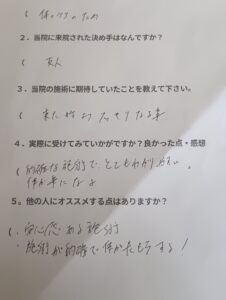 ( 体のケアのため
2. 当院に来院された決め手はなんですか?
( 友人
3. 当院の施術に期待していたことを教えて下さい。
( 来た時よりスッキリなる事
4. 実際に受けてみていかがですか?良かった点・感想
( 的確な施術で、とてもわかり
体が楽になる
5。他の人にオススメする点はありますか?
( ・安心感ある施術
・施術が的確で体かたもうする!